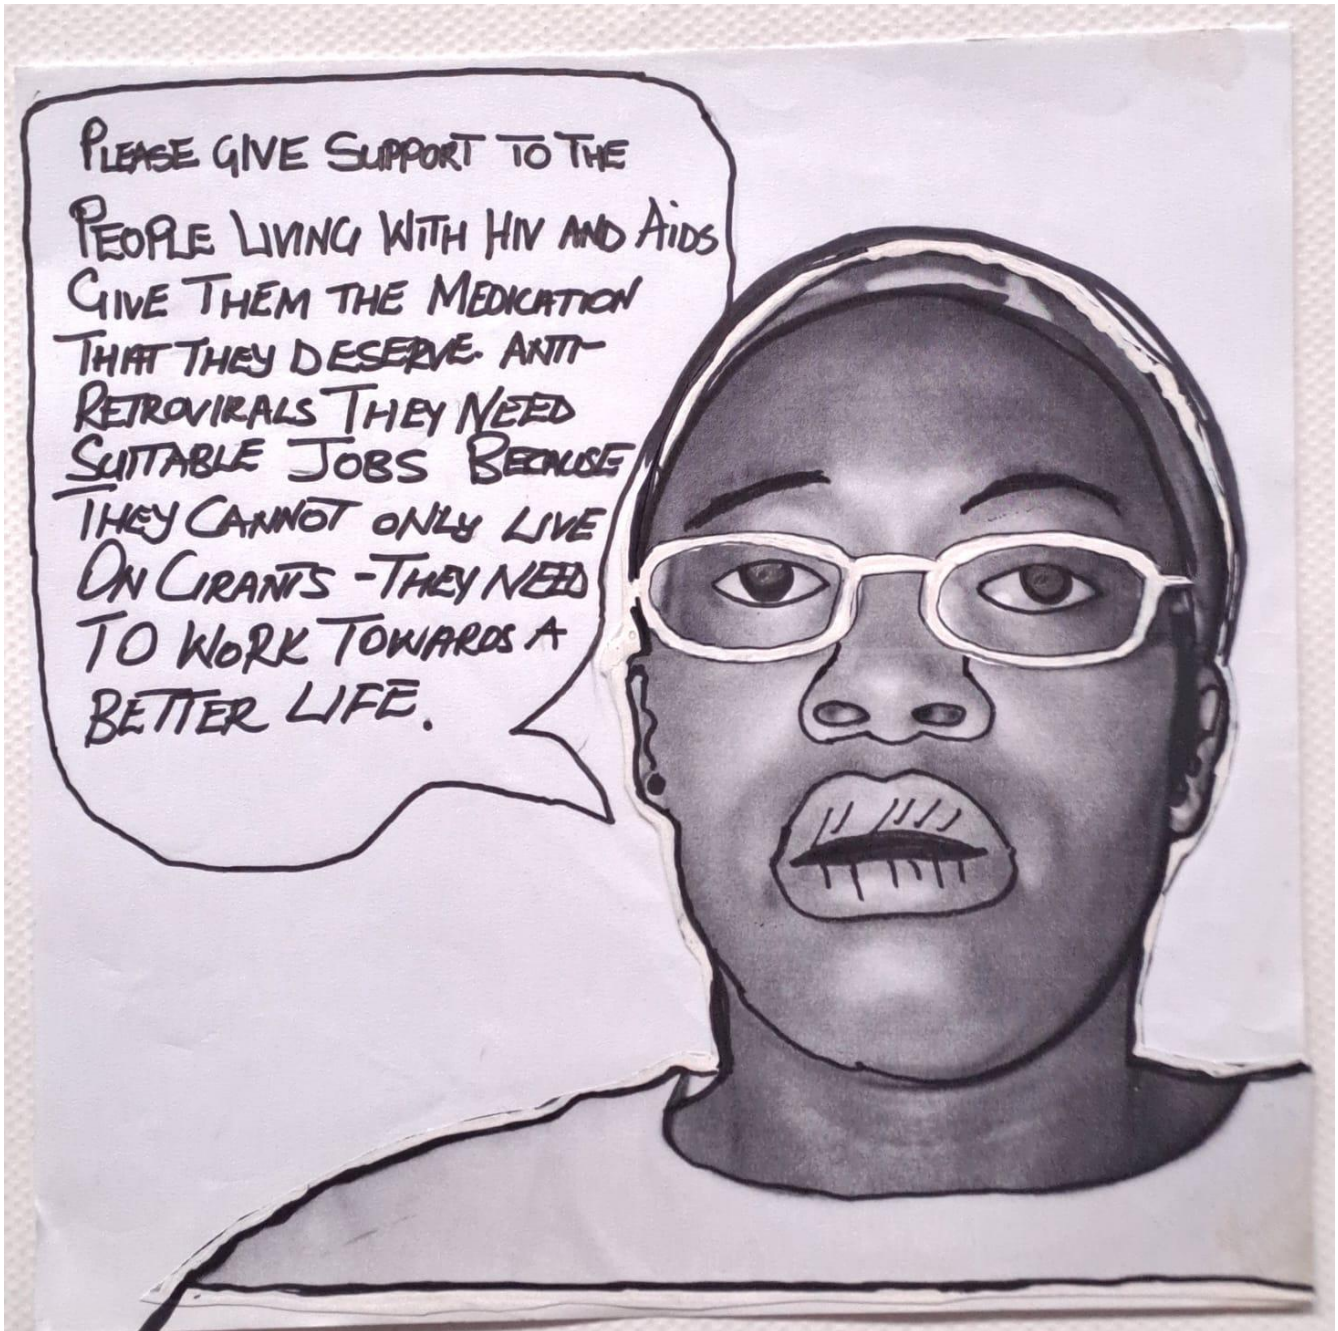 PLEASE GIVE SUPPORT TO THE
PEOPLE LIVING WITH HIV AND AIDS
GIVE THEM THE MEDICATION
THAT THEY DESERVE. ANTI-
RETROVIRALS THEY NEED
SUITABLE JOBS BECAUSE
THEY CANNOT ONLY LIVE
ON GRANTS - THEY NEED
TO WORK TOWARDS A
BETTER LIFE.